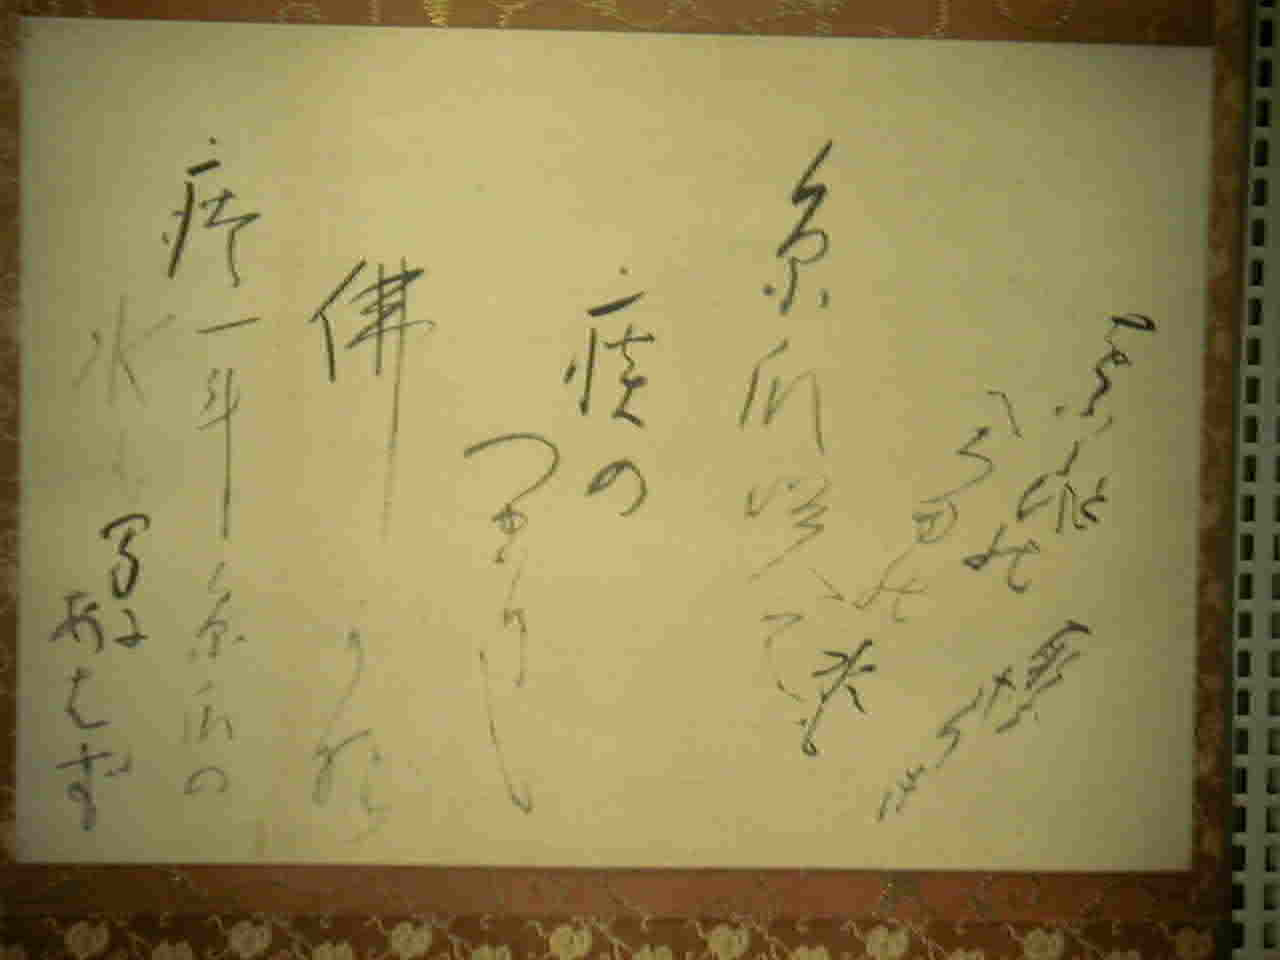 をとゝひの
へちまの
水も
取らざりき
糸瓜咲て
痰の
つまりし
佛かな
痰一斗糸瓜の
水も
間に
あはず